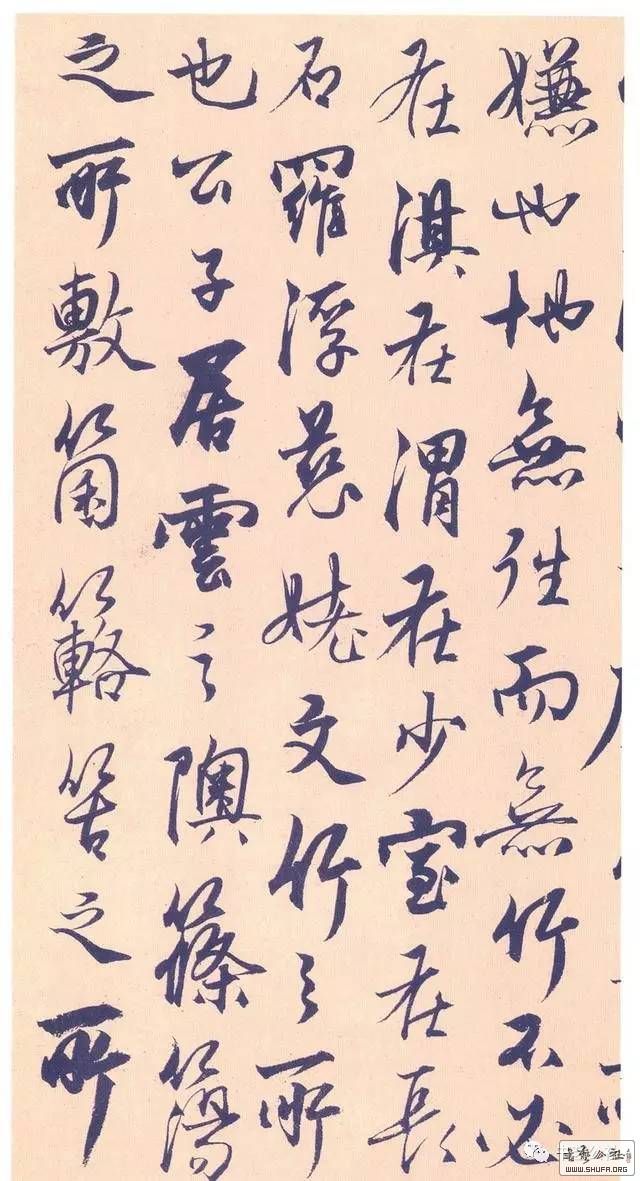 嫌也地無往而無竹不必
在淇在渭在少室在長
石羅浮慈姥文竹之所
也公子居雲之隩篠簜
之所敷箘之所
WWW.SHUFA.ORG